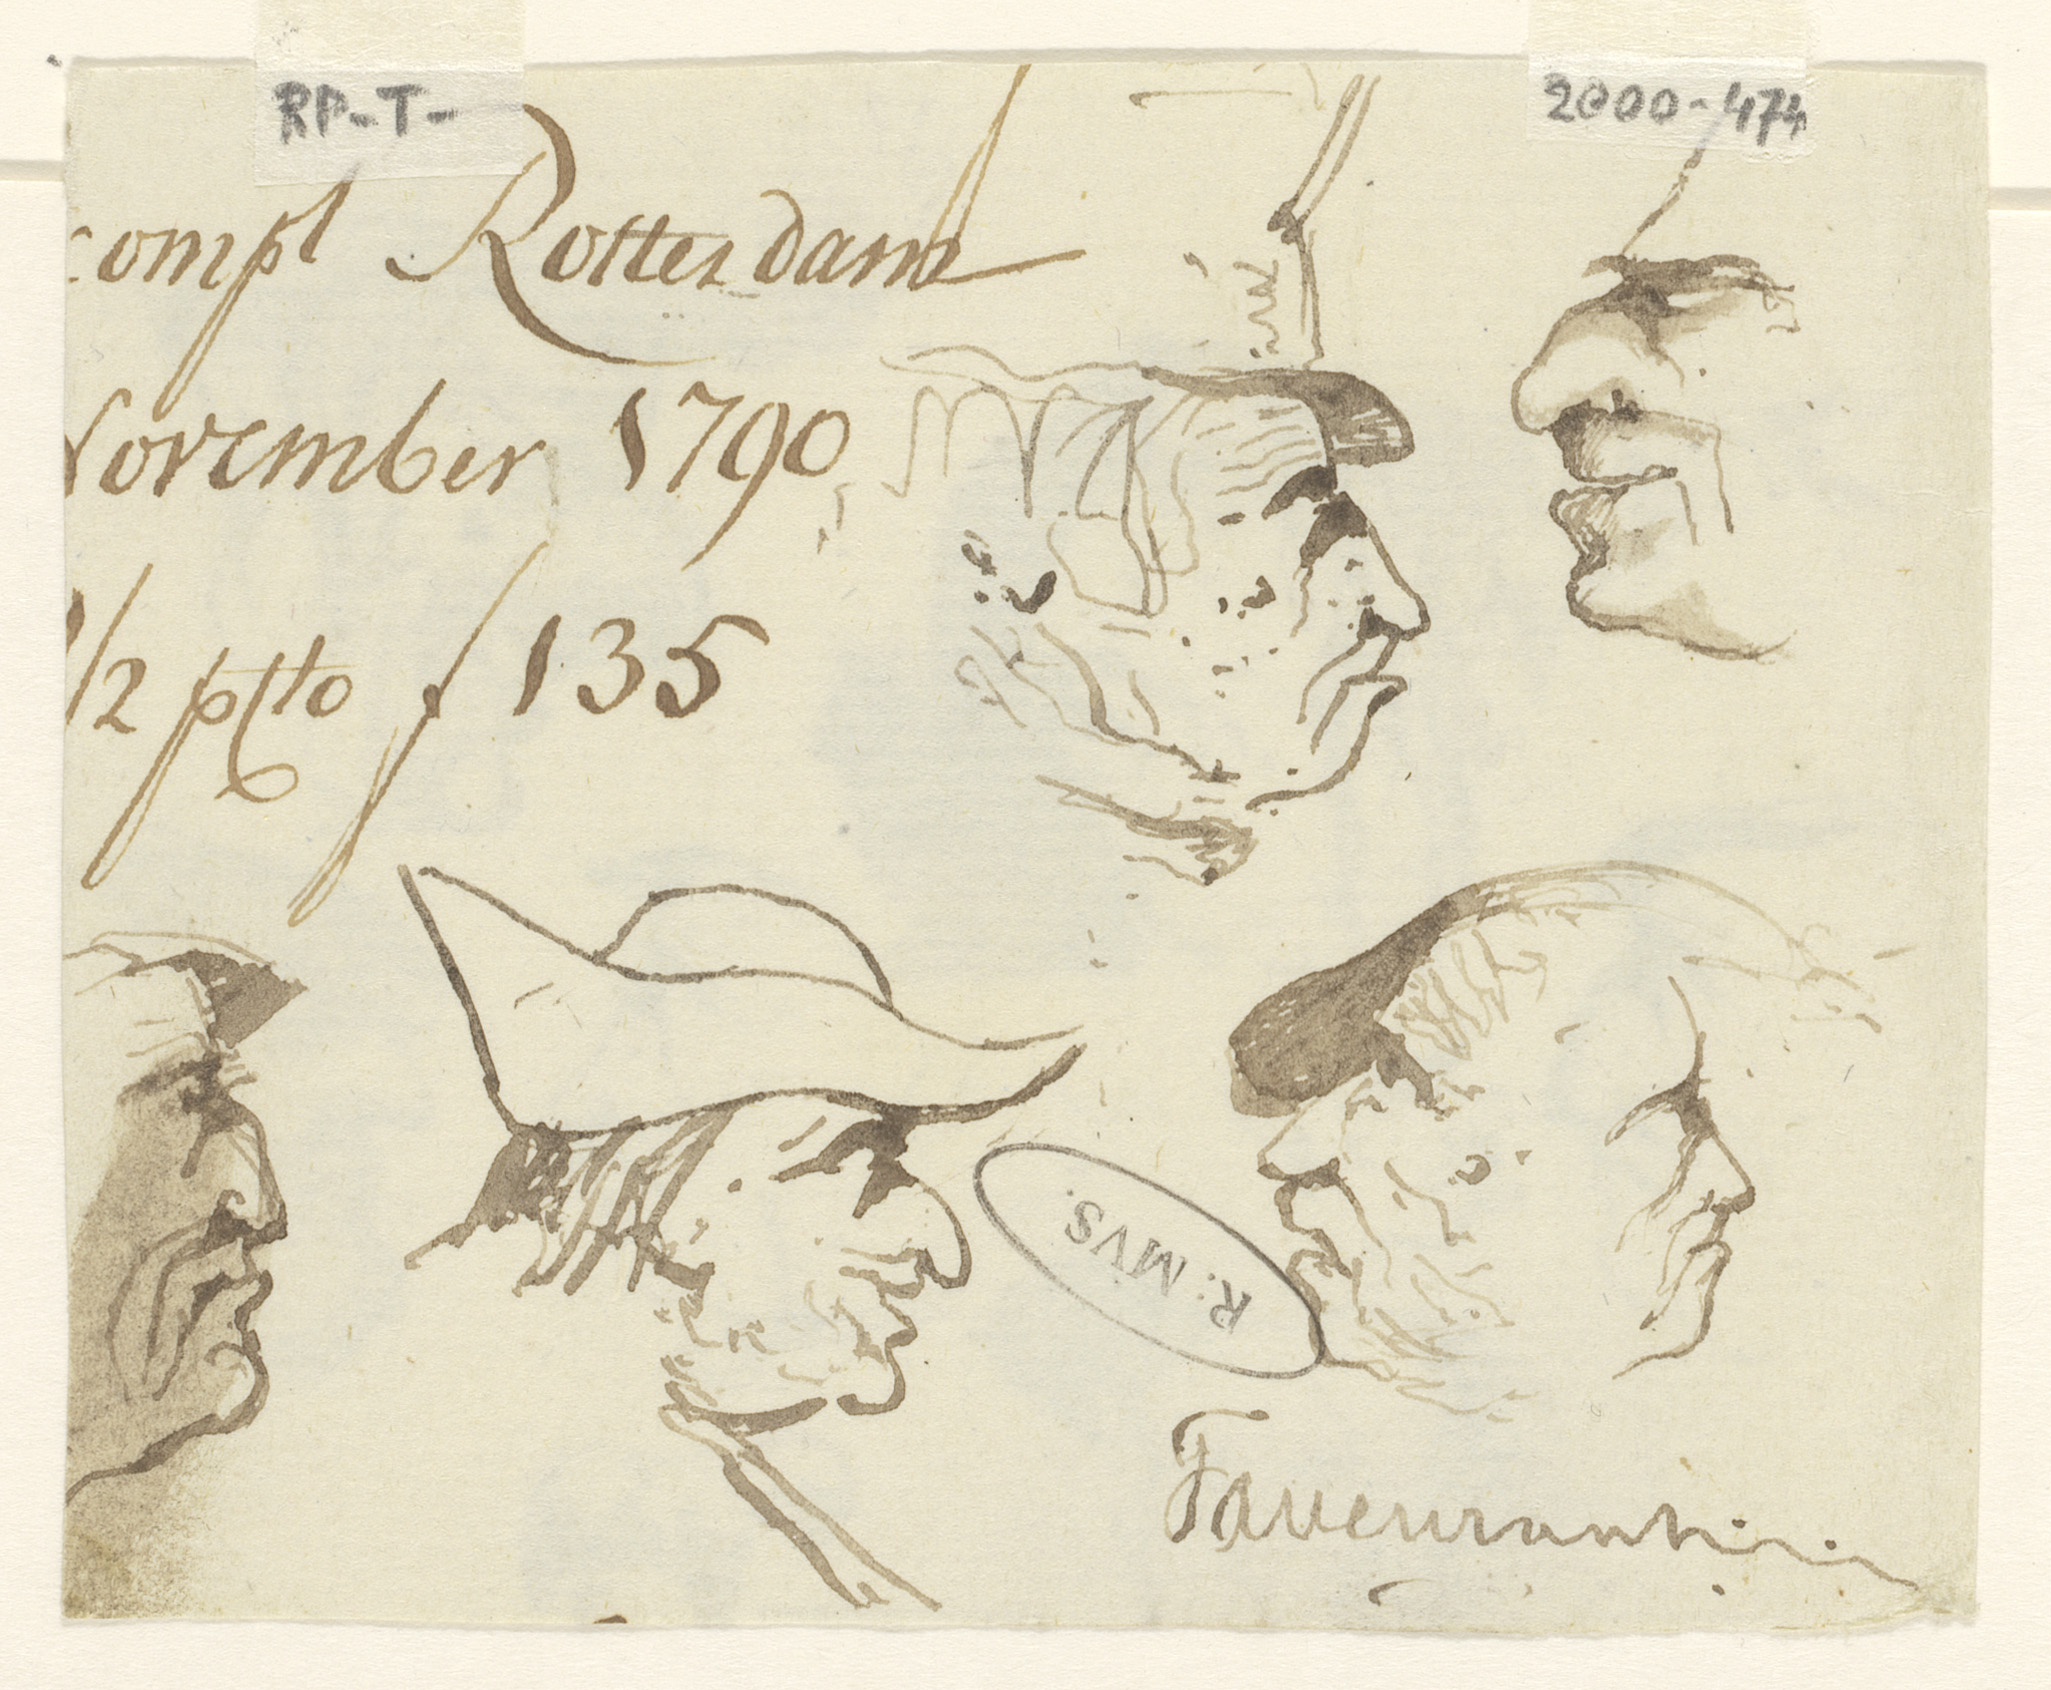 RP-T-
2000-474
compl Rotterdam
November 1790
1/2 ptto f 135
R. MVS.